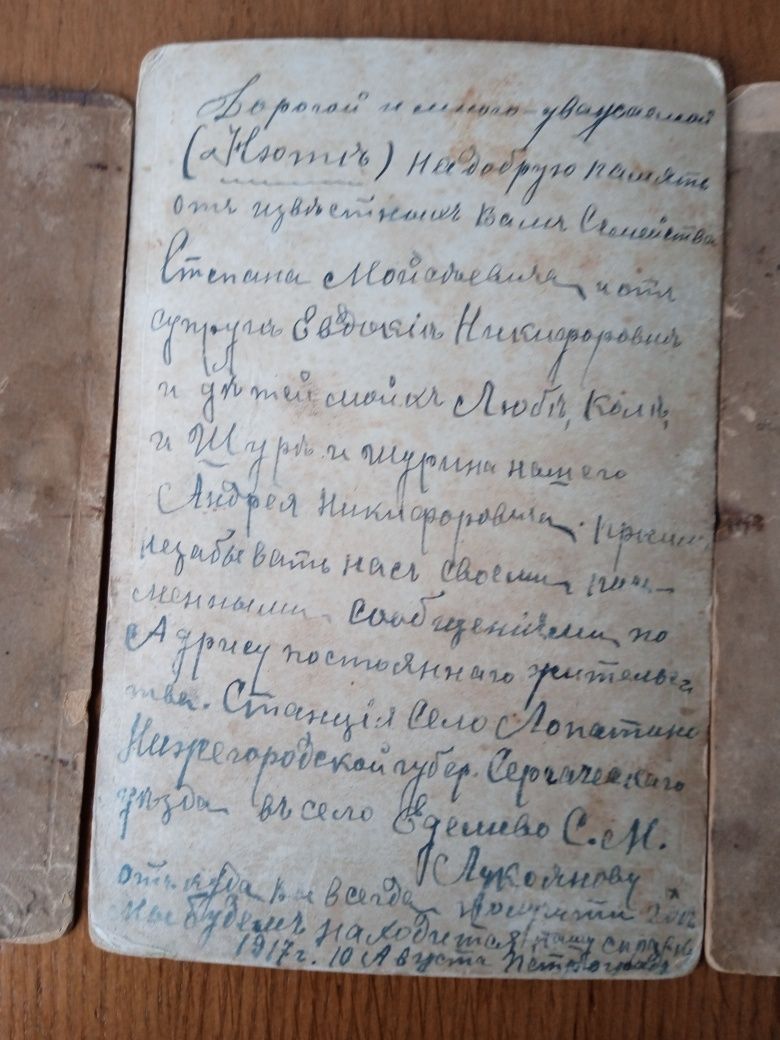 Дорогой и много-уважаемой
(Нютѣ) на добрую память
отъ извѣстныхъ вамъ Семейства
Степана Мойсѣевича и отъ
супруги Евдокіи Никифоровны
и дѣтей мойхъ Любѣ, Колѣ,
и Шурѣ и шурина нашего
Андрея Никифоровича.
незабывать насъ своеми пись-
менными сообщеніями по
Адрису постояннаго жительст
тва. Станція Село Лопатино
Нижегородской губер. Сергачскаго
уѣзда въ село Еделево С. М.
Лукоянову
откуда вы всегда
мы будемъ находится
1917 г. 10 Августа Петроградъ